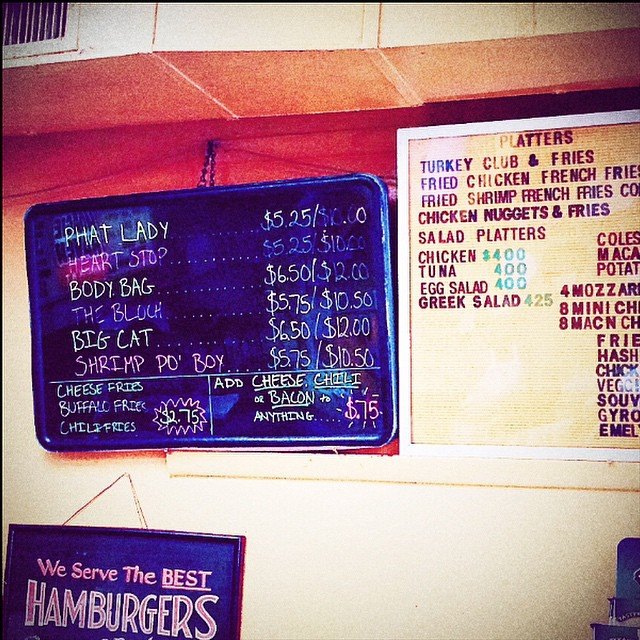 PHAT LADY $5.25/$10.00
HEART STOP $5.25/$10.00
BODY BAG $6.50/$12.00
THE BLOCK $5.75/$10.50
BIG CAT $6.50/$12.00
SHRIMP PO' BOY $5.75/$10.50
CHEESE FRIES
BUFFALO FRIES
CHILI FRIES
$2.75
ADD CHEESE, CHILI
OR BACON TO
ANYTHING..... $.75
PLATTERS
TURKEY CLUB & FRIES
FRIED CHICKEN FRENCH FRIES
FRIED SHRIMP FRENCH FRIES CO
CHICKEN NUGGETS & FRIES
SALAD PLATTERS
CHICKEN $400
TUNA 400
EGG SALAD 400
GREEK SALAD 425
COLES
MACA
POTAT
4 MOZZAR
8 MINI CH
8 MAC N CH
FRIE
HASH
CHICK
VEGGI
SOUV
GYRO
EMEL
We Serve The BEST
HAMBURGERS